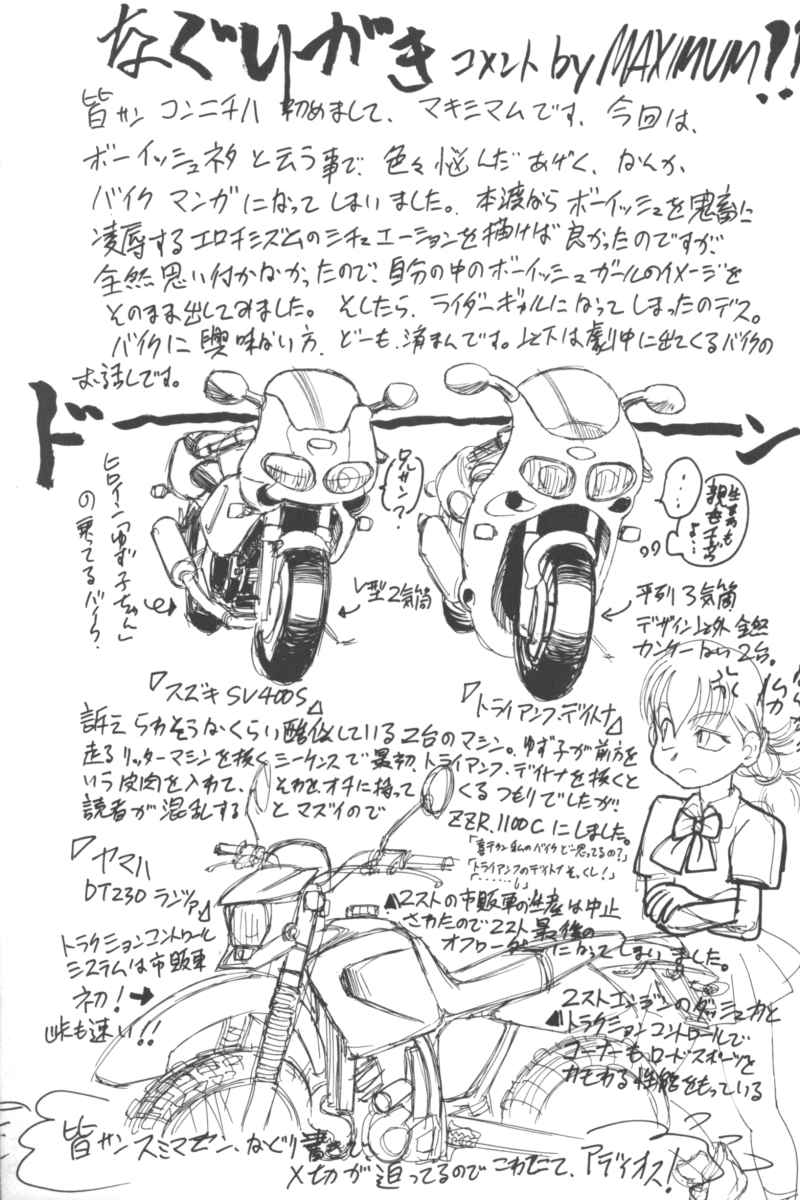 なぐりがき コメント by MAXIMUM!!
皆サン コンニチハ 初めまして、マキシマムです、今回は、
ボーイッシュネタと云う事で、色々悩んだあげく、なんか、
バイクマンガになってしまいました。本渡ならボーイッシュを鬼畜に
凌辱するエロチシズムのシチュエーションを描けば良かったのですが、
全然思い付かなかったので、自分の中のボーイッシュガールのイメージを
そのまま出してみました。そしたら、ライダーギャルになってしまったのデス。
バイクに興味ない方、どーも、済まんです。以下は劇中に出てくるバイクの
お話しです。
ドーン
ヒロイン「ゆず子ちゃん」
の乗ってるバイク.
兄サン?
・・・
生きるも
V型2気筒
平列3気筒
デザイン以外全然
カンケーない2台。
「スズキSV400S」
「トライアンフ.デイトナ」
訴えられそうなくらい酷似している2台のマシン。ゆず子が前方を
走るリッターマシンを抜くシーケンスで最初、トライアンフ.デイトナを抜くと
いう皮肉を入れて、それをオチに持ってくるつもりでしたが、
読者が混乱するとマズイので
ZZR.1100Cにしました。
「トライアンフのデイトナそっくし!」
「・・・・・・。」
「ヤマハ
DT230 ランツァ」
トラクションコントロール
システムは市販車
初!
峠も速い!!
2ストの市販車の生産は中止
されたので2スト最後の
オフローダーになってしまいました。
2ストエンジンのダッシュ力と
トラクションコントロールで
コーナーも、ロードスポーツを
カモれる性能をもっている
皆サンスミマセン、なぐり書きで、
〆切が迫ってるのでこれにて、アディオス!